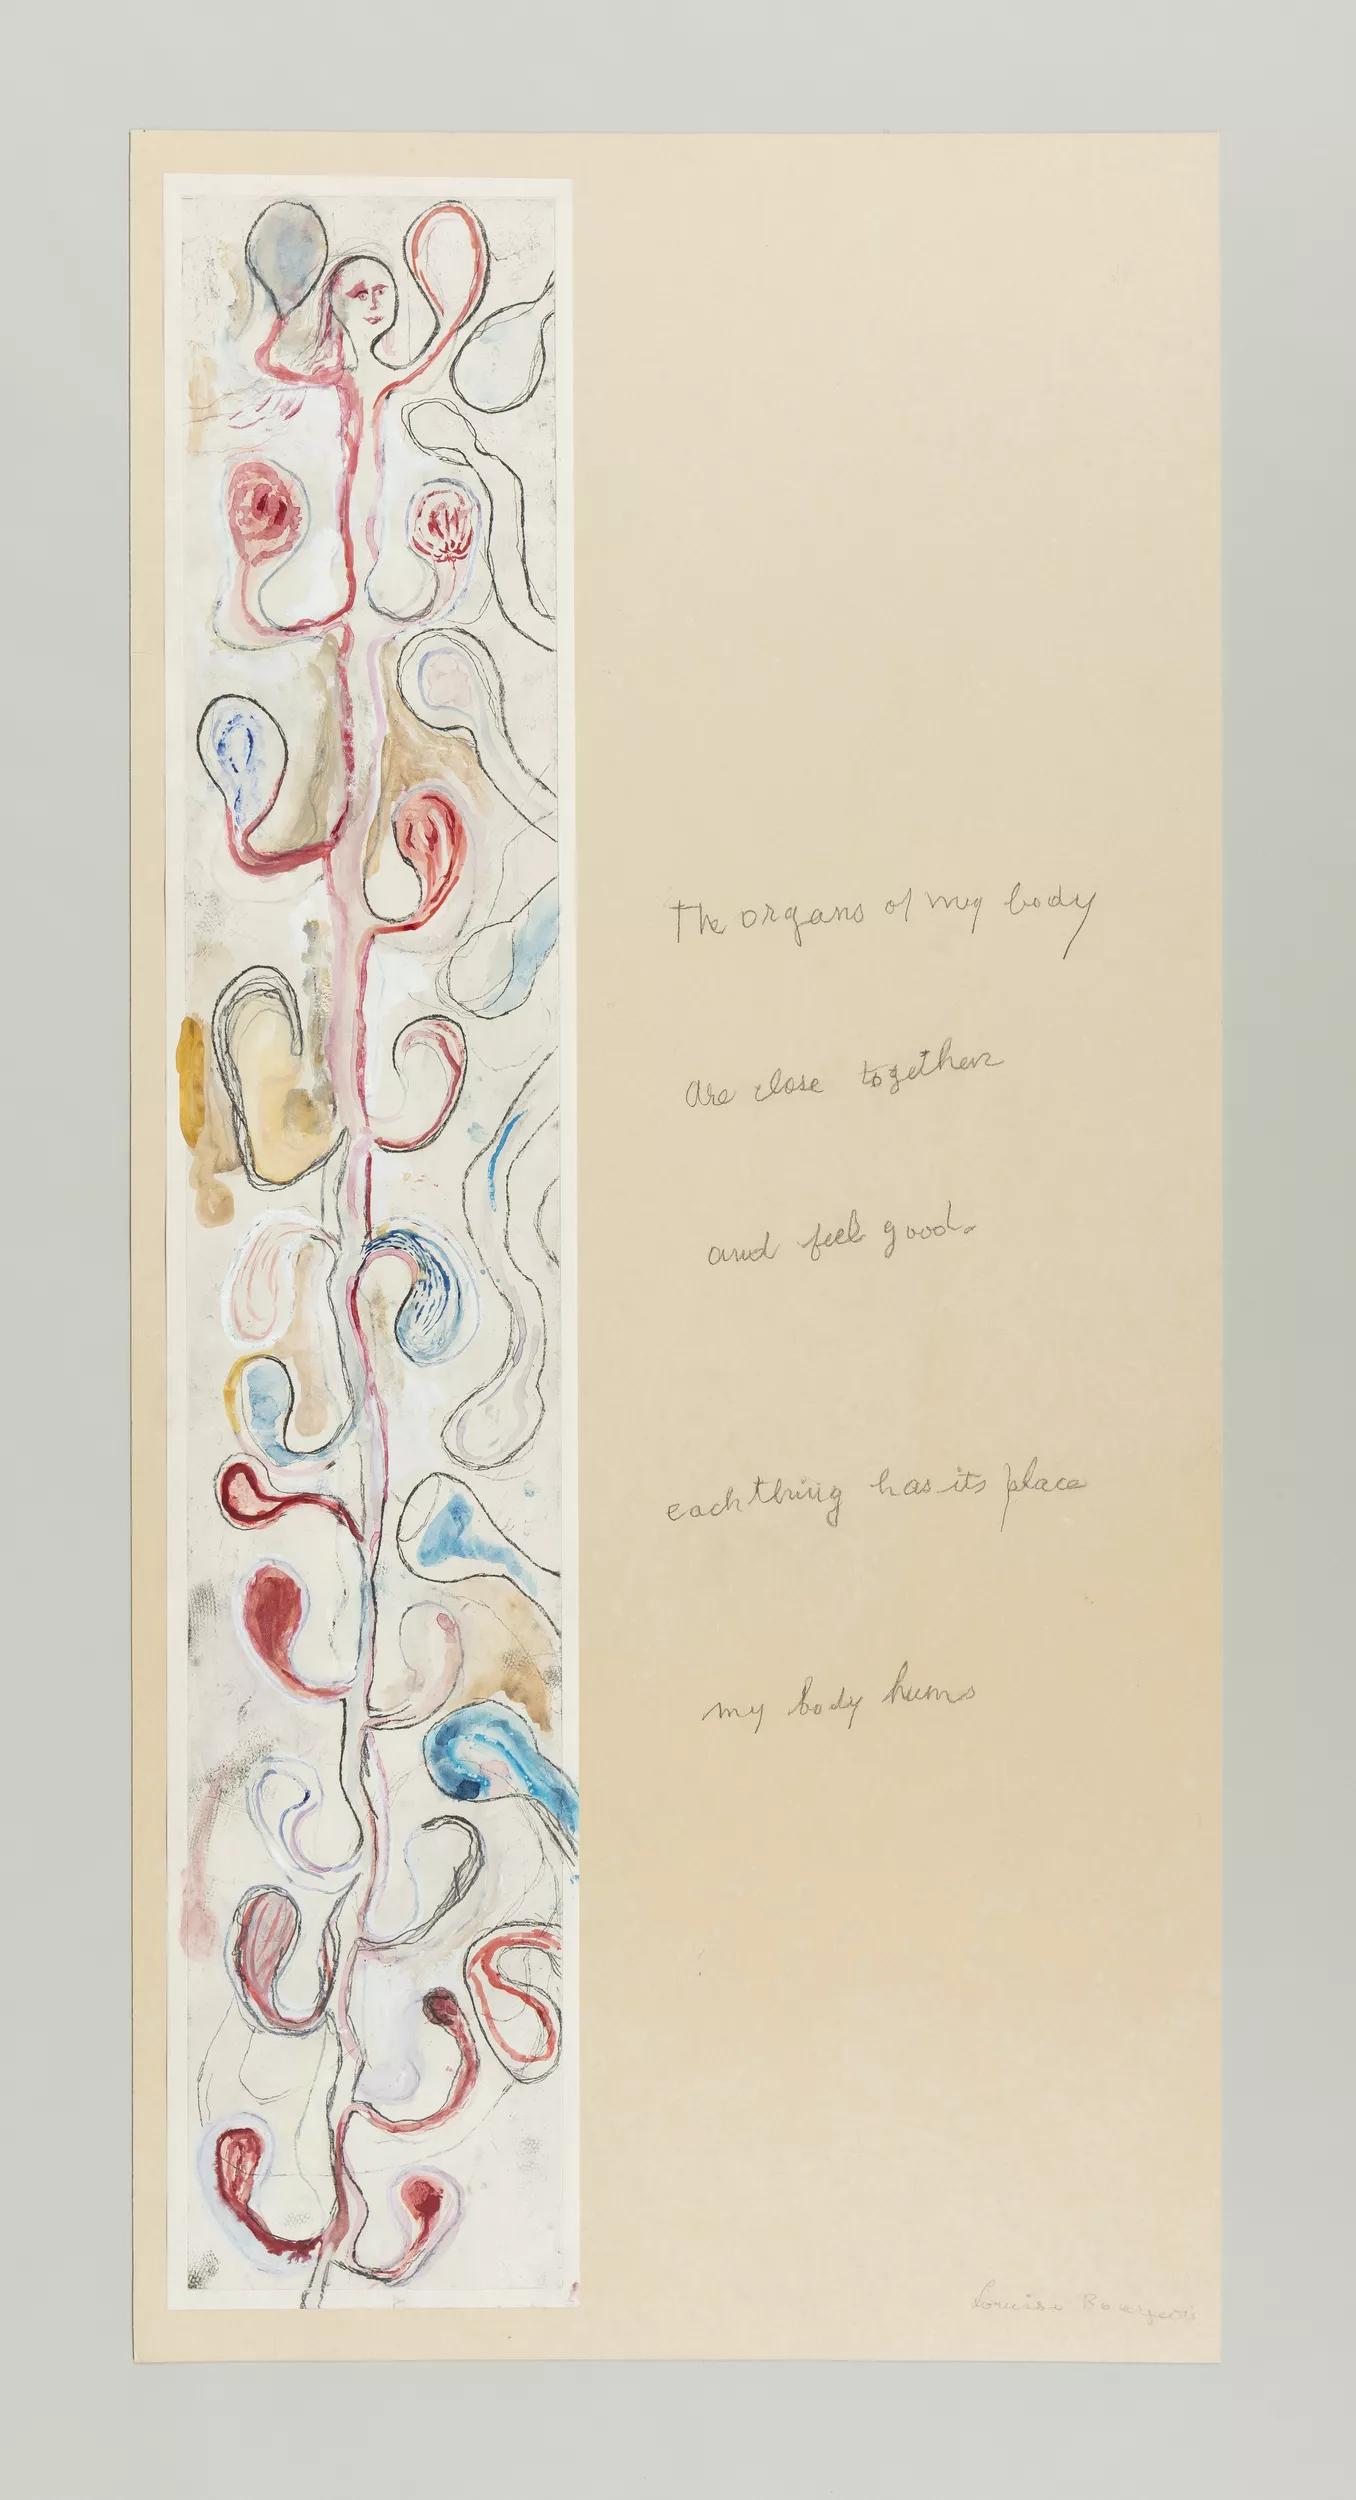 The organs of my body
are close together
and feel good.
each thing has its place
my body hums
Louise Bourgeois